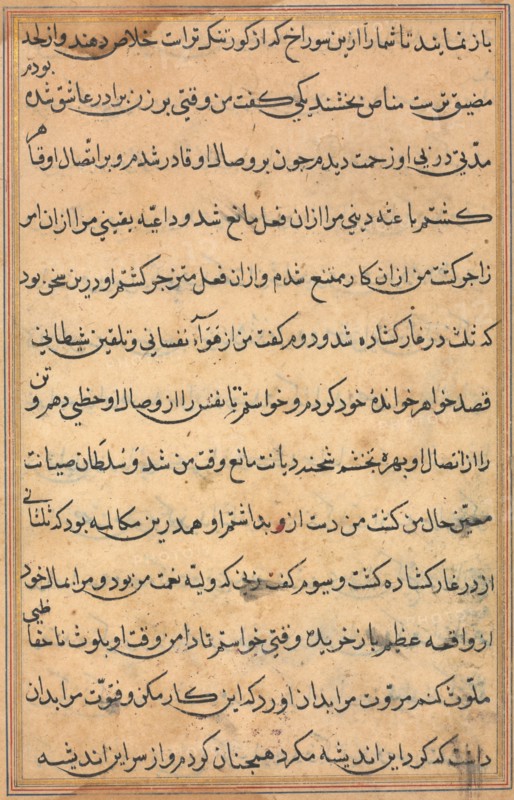 باز نمایند تا شما را ازین سوراخ که از کور تنک تراست خلاص دهند واز لحد
مضیق ترست مناص بخشند یکی کفت من وقتی بر زن برادر عاشق شده بودم
مدتی در پی او زحمت دیدم چون بر وصال او قادر شدم و بر اتصال او قاهر
کشتم باعثه دینی مرا ازان فعل مانع شد و داعیه یقینی مرا ازان امر
زاجر کشت من ازان کار ممتنع شدم وازان فعل منزجر کشتم او درین سخن بود
که ثلث در غار کشاده شد و دوم کفت من از هوآء نفسانی و تلقین شیطانی
قصد خواهر خوانده خود کردم و خواستم تا نفس را از وصال او حظی دهم و تن
را از اتصال او بهره بخشم شحنه دیانت مانع وقت من شد و سلطان صیانت
معین حال من کشت من دست ازو بداشتم او همدرین مکالمه بود که ثلثانی
از در غار کشاده کشت و سیوم کفت زنی که ولیه نعمت من بود و مرا بمال خود
از واقعه عظیم باز خریده وقتی خواستم تا دامن وقت او بلوث ناحفاظی
ملوث کنم مروت مرا بدان اورد که این کار مکن و فتوت مرا بدان
داشت که کرد این اندیشه مکرد همچنان کردم و از سر این اندیشه